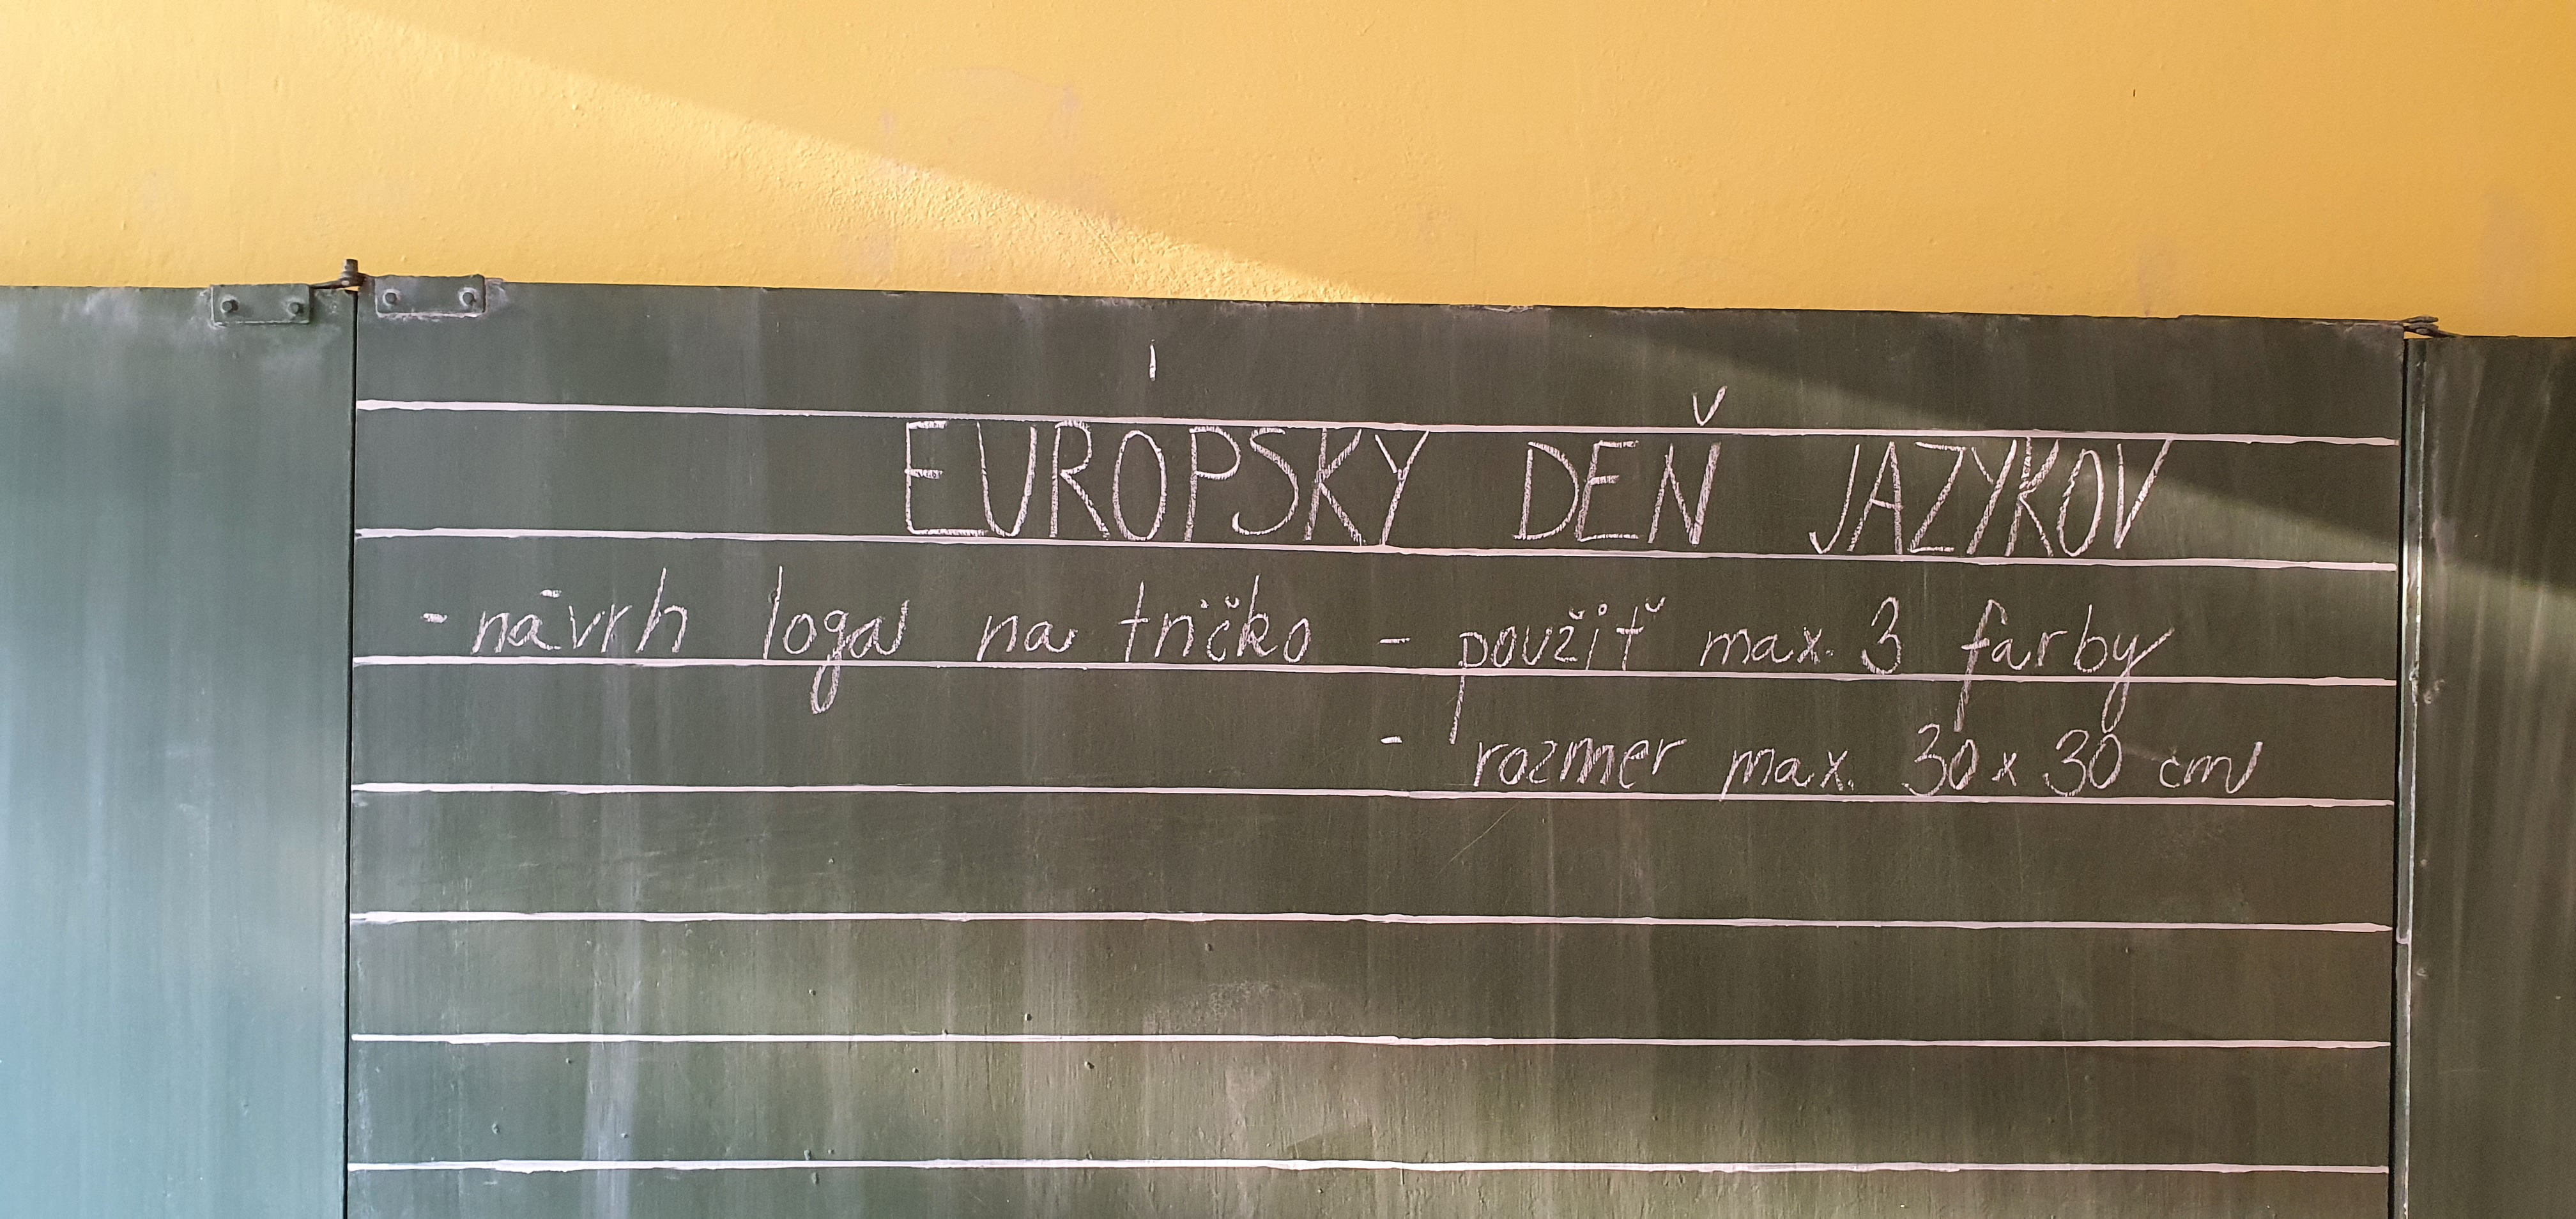 EURÓPSKY DEŇ JAZYKOV
- návrh loga na tričko - použiť max. 3 farby
- rozmer max. 30 x 30 cm